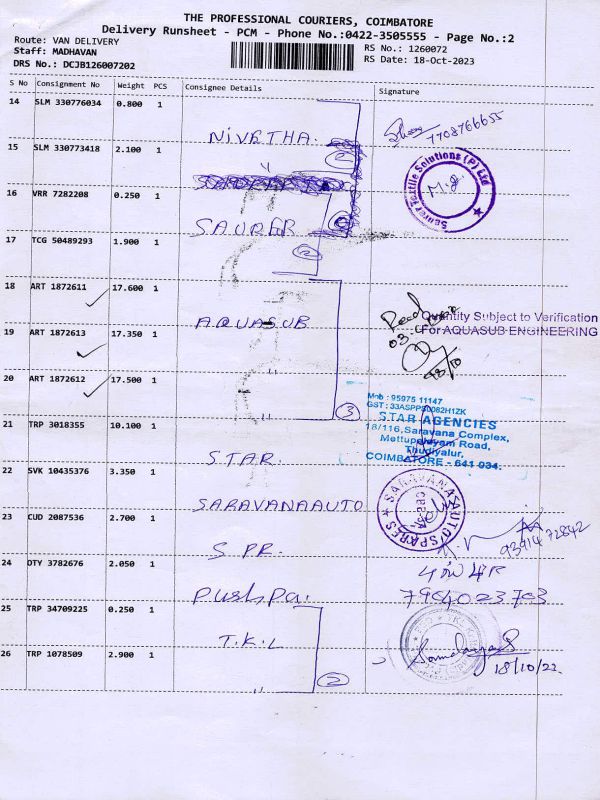 THE PROFESSIONAL COURIERS, COIMBATORE
Delivery Runsheet - PCM - Phone No.:0422-3505555 - Page No.:2
Route: VAN DELIVERY
Staff: MADHAVAN
DRS No.: DCJB126007202
RS No.: 1260072
RS Date: 18-Oct-2023
S No Consignment No Weight PCS Consignee Details Signature
14 SLM 330776034 0.800 1
NIVETHA.
7708766655
15 SLM 330773418 2.100 1
2
Saurer Textile Solutions (P) Ltd
16 VRR 7282208 0.250 1
SAURER
17 TCG 50489293 1.900 1
2
18 ART 1872611 17.600 1
AQUASUB
Quantity Subject to Verification
For AQUASUB ENGINEERING
19 ART 1872613 17.350 1
20 ART 1872612 17.500 1
3
Mob : 95975 11147
STAR AGENCIES
18/116, Saravana Complex,
Mettupalayam Road,
Thudiyalur,
COIMBATORE - 641 034.
21 TRP 3018355 10.100 1
STAR.
22 SVK 10435376 3.350 1
SARAVANAAUTO
SARAVANA AUTO SPARES
23 CUD 2087536 2.700 1
S PR.
24 DTY 3782676 2.050 1
Pushpa.
25 TRP 34709225 0.250 1
T.K.L
26 TRP 1078509 2.900 1
2